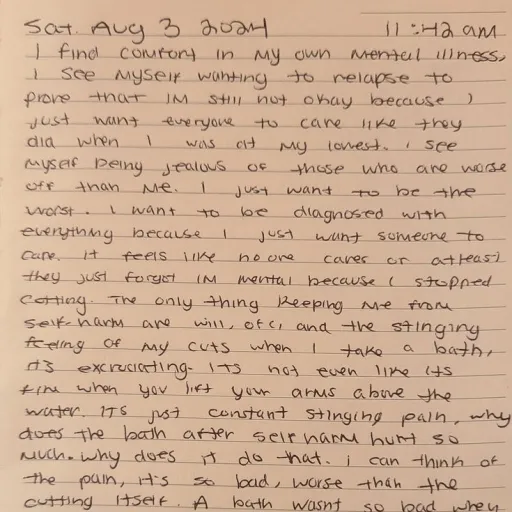 Sat. Aug 3 2024 11:42 am
I find comfort in my own mental illness,
I see myself wanting to relapse to
prove that IM still not okay because I
just want everyone to care like they
did when I was at my lowest. i see
myself being jealous of those who are worse
off than me. I just want to be the
worst. I want to be diagnosed with
everything because I just want someone to
care. it feels like no one cares or atleast
they just forgot IM mental because I stopped
cutting. The only thing keeping me from
self-harm are will, ofc, and the stinging
feeling of my cuts when I take a bath,
it's excruciating. ITS not even like its
fine when you lift your arms above the
water. ITS just constant stinging pain, why
does the bath after self harm hurt so
much. why does it do that. i can think of
the pain, it's so bad, worse than the
cutting itself. A bath wasnt so bad when